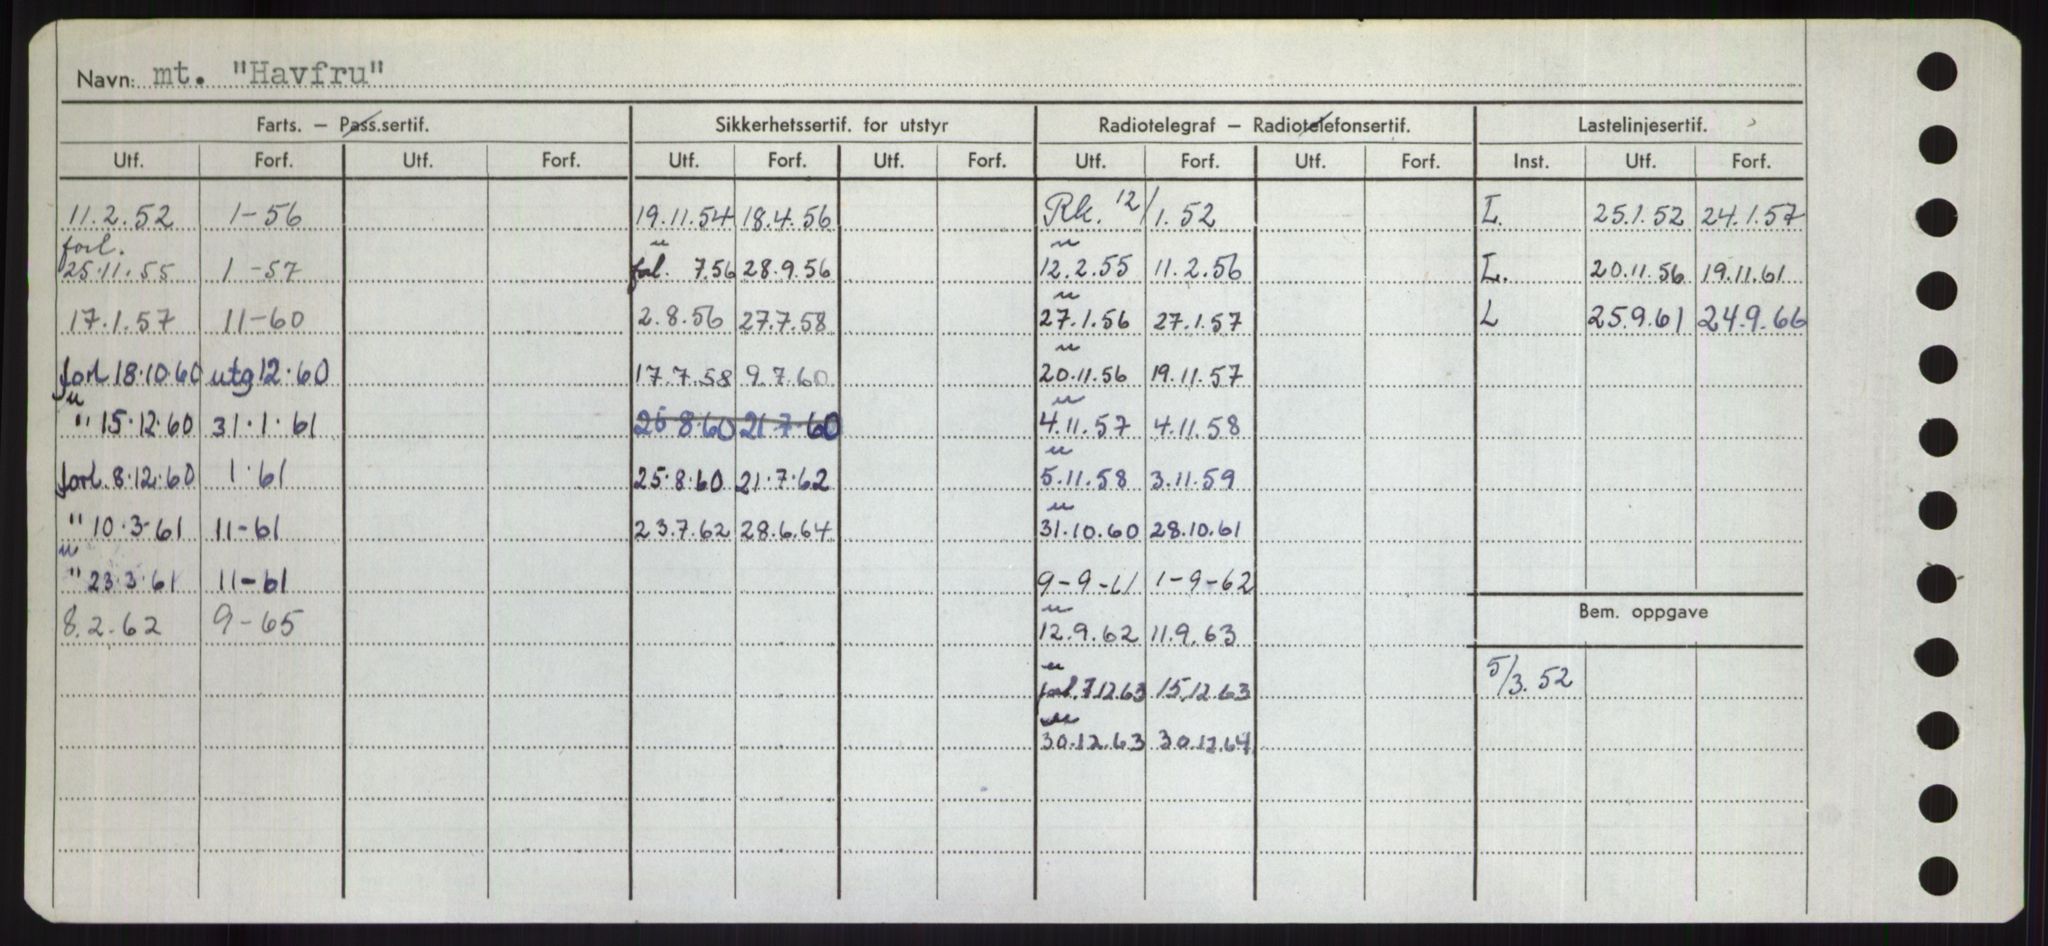 Navn: mt. "Havfru"
Farts. – Pass.sertif. Sikkerhetssertif. for utstyr Radiotelegraf – Radiotelefonsertif. Lastelinjesertif.
Utf. Forf. Utf. Forf. Utf. Forf. Utf. Forf. Utf. Forf. Utf. Forf. Inst. Utf. Forf.
11.2.52 1-56 19.11.54 18.4.56 Rk. 12/1.52 L. 25.1.52 24.1.57
forl. u u
25.11.55 1-57 fol. 7.56 28.9.56 12.2.55 11.2.56 L. 20.11.56 19.11.61
u
17.1.57 11-60 2.8.56 27.7.58 27.1.56 27.1.57 L 25.9.61 24.9.66
u
forl 18.10.60 utg 12.60 17.7.58 9.7.60 20.11.56 19.11.57
u u
" 15.12.60 31.1.61 26.8.60 21.7.60 4.11.57 4.11.58
u
forl. 8.12.60 1.61 25.8.60 21.7.62 5.11.58 3.11.59
u
" 10.3-61 11-61 23.7.62 28.6.64 31.10.60 28.10.61
u
" 23.3.61 11-61 9-9-61 1-9-62
u
8.2.62 9-65 12.9.62 11.9.63
Bem. oppgave
u
forl. 7.12.63 15.12.63 5/3.52
u
30.12.63 30.12.64